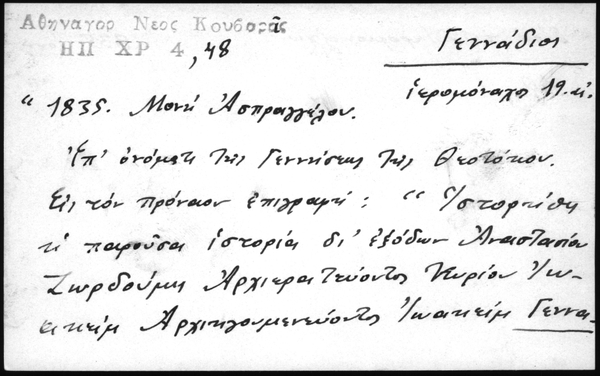 Αθηναγορ Νεος Κουβαρᾶς
ΗΠ ΧΡ 4, 48
Γεννάδιος
ἱερομόναχος 19 αἰ.
" 1835. Μονὴ Ἀσπραγγέλου.
Ἐπ' ὀνόματι τῆς Γεννήσεως τῆς Θεοτόκου.
Εἰς τὸν πρόναον ἐπιγραφή : " Ἱστορήθη
ἡ παροῦσα ἱστορία δι' ἐξόδων Ἀναστασίου
Ζωρδούμη Ἀρχιερατεύοντος Κυρίου Ἰωα-
κεὶμ Ἀρχιηγουμενεύοντος Ἰωακεὶμ Γεννα-